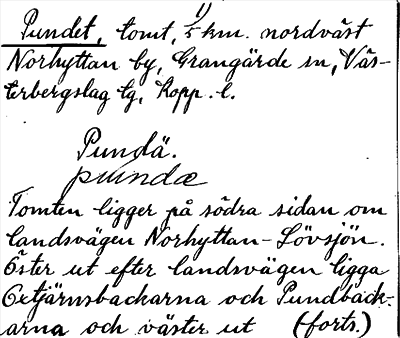 Pundet, tomt, 5 km. nordväst
Norhyttan by, Grangärde sn, Väs-
terbergslag tg, Kopp. l.
Pundä.
pundæ
Tomten ligger på södra sidan om
landsvägen Norhyttan-Lövsjön.
Öster ut efter landsvägen ligga
Oxtjärnsbackarna och Pundback-
arna och väster ut (forts.)